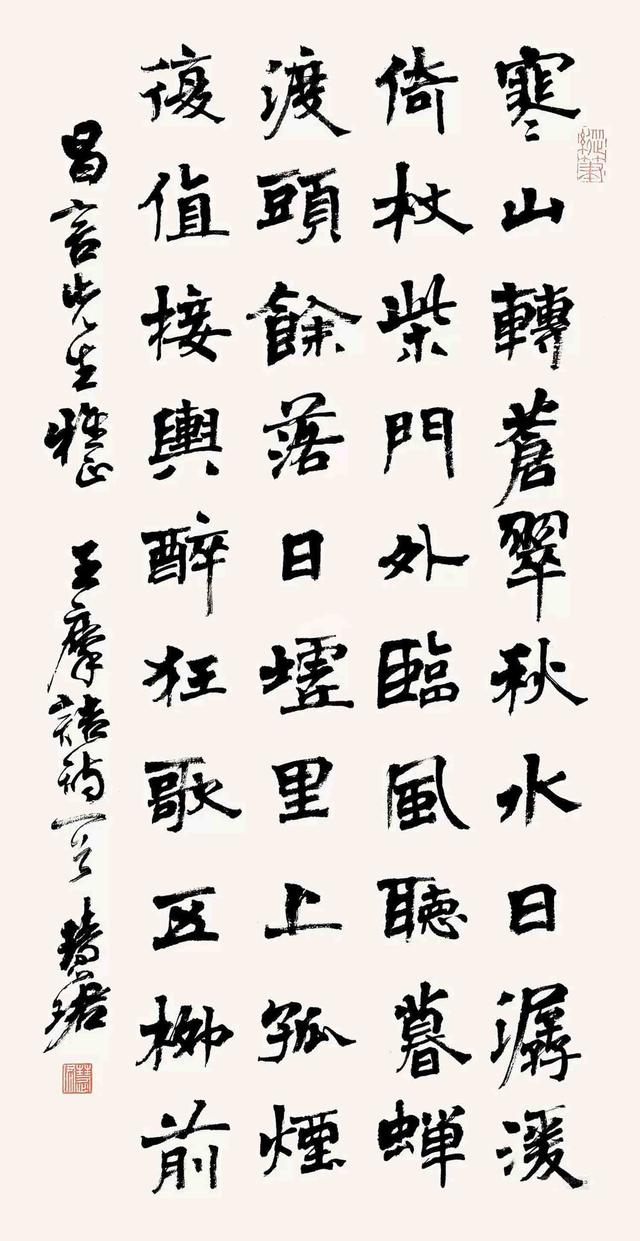 寒山轉蒼翠秋水日潺湲
倚杖柴門外臨風聽暮蟬
渡頭餘落日墟里上孤煙
復值接輿醉狂歌五柳前
昌言先生雅正 王摩詰詩一首